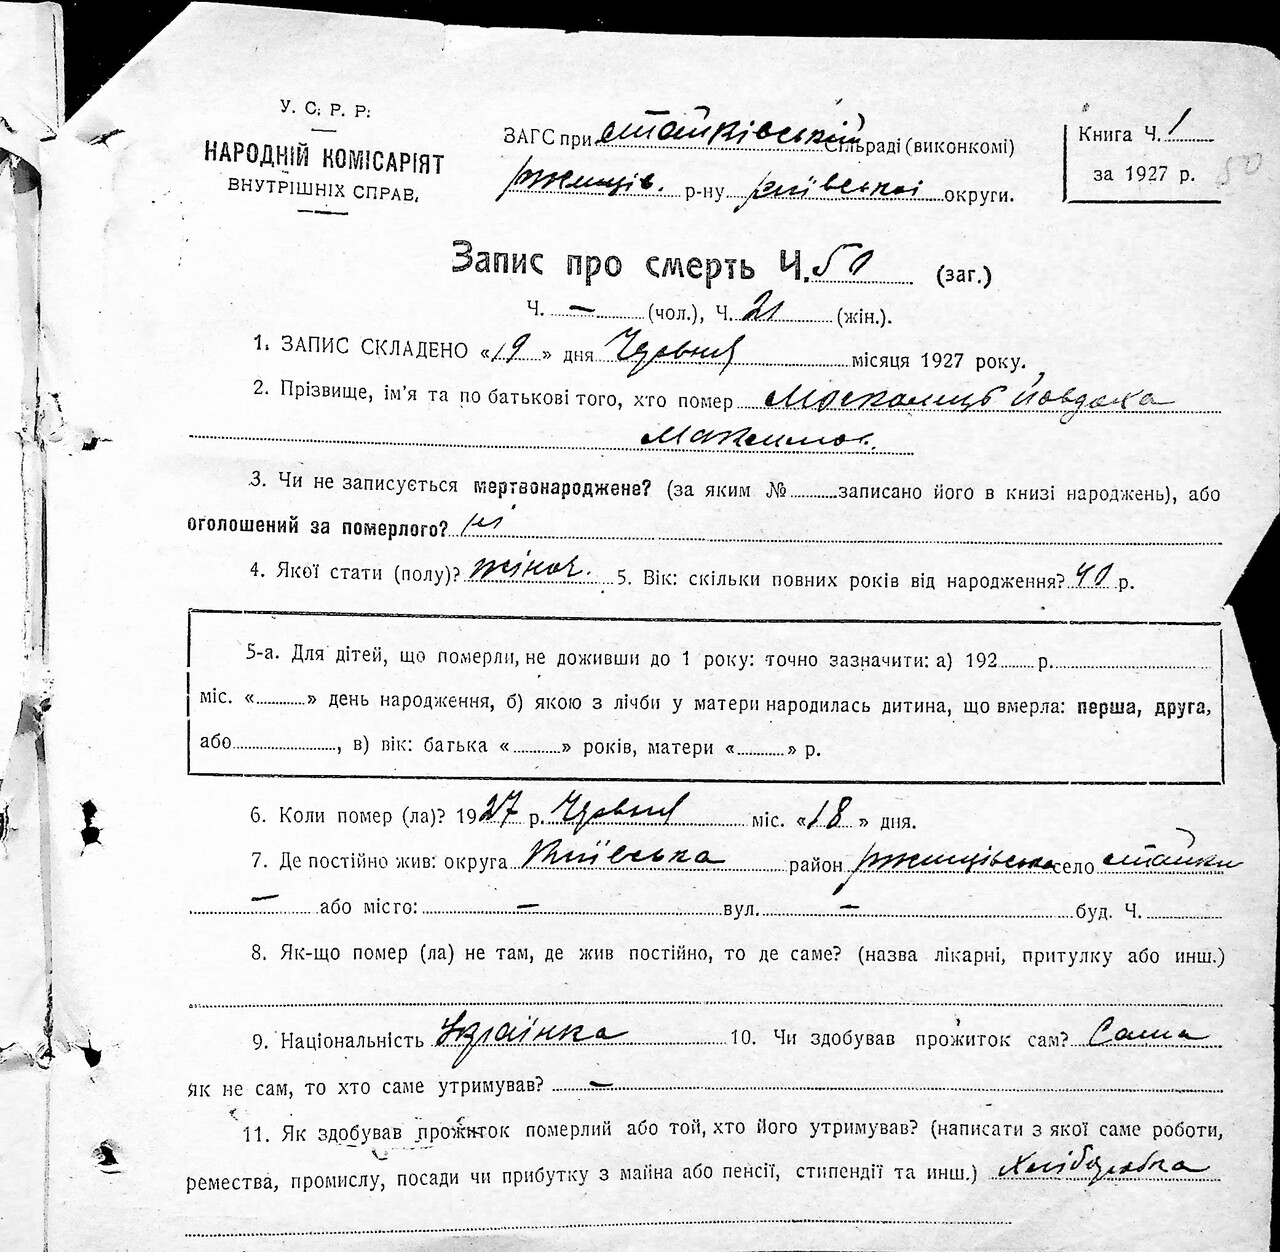 У. С. Р. Р.
НАРОДНІЙ КОМІСАРІЯТ
ВНУТРІШНІХ СПРАВ.
ЗАГС при Стайківській сільраді (виконкомі)
Ржищів. р-ну Київської округи.
Книга Ч. 1
за 1927 р.
50
Запис про смерть Ч. 50 (заг.)
Ч. — (чол.), Ч. 21 (жін.).
1. ЗАПИС СКЛАДЕНО «19» дня Червня місяця 1927 року.
2. Прізвище, ім'я та по батькові того, хто помер Москалець Йовдоха
Максимов.
3. Чи не записується мертвонароджене? (за яким № записано його в книзі народжень), або
оголошений за померлого? ні
4. Якої стати (полу)? жіноч. 5. Вік: скільки повних років від народження? 40 р.
5-а. Для дітей, що померли, не доживши до 1 року: точно зазначити: а) 192 р.
міс. « » день народження, б) якою з лічби у матери народилась дитина, що вмерла: перша, друга,
або , в) вік: батька « » років, матери « » р.
6. Коли помер (ла)? 1927 р. Червня міс. «18» дня.
7. Де постійно жив: округа Київська район Ржищівськ село Стайки
— або місто: — вул. — буд. Ч.
8. Як-що помер (ла) не там, де жив постійно, то де саме? (назва лікарні, притулку або инш.)
9. Національність Українка 10. Чи здобував прожиток сам? Сама
як не сам, то хто саме утримував? —
11. Як здобував прожиток померлий або той, хто його утримував? (написати з якої саме роботи,
ремества, промислу, посади чи прибутку з майна або пенсії, стипендії та инш.) Хліборобка